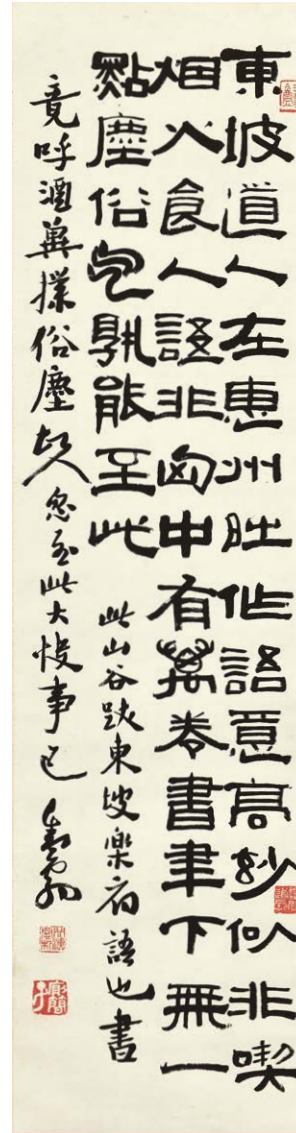 東坡道人在惠州時作語意高妙似非喫
烟火食人語非匈中有萬卷書聿下無一
點塵俗气孰能至此 此山谷跋東坡樂府語也書
竟呼酒撲俗塵故人忽至此大快事也